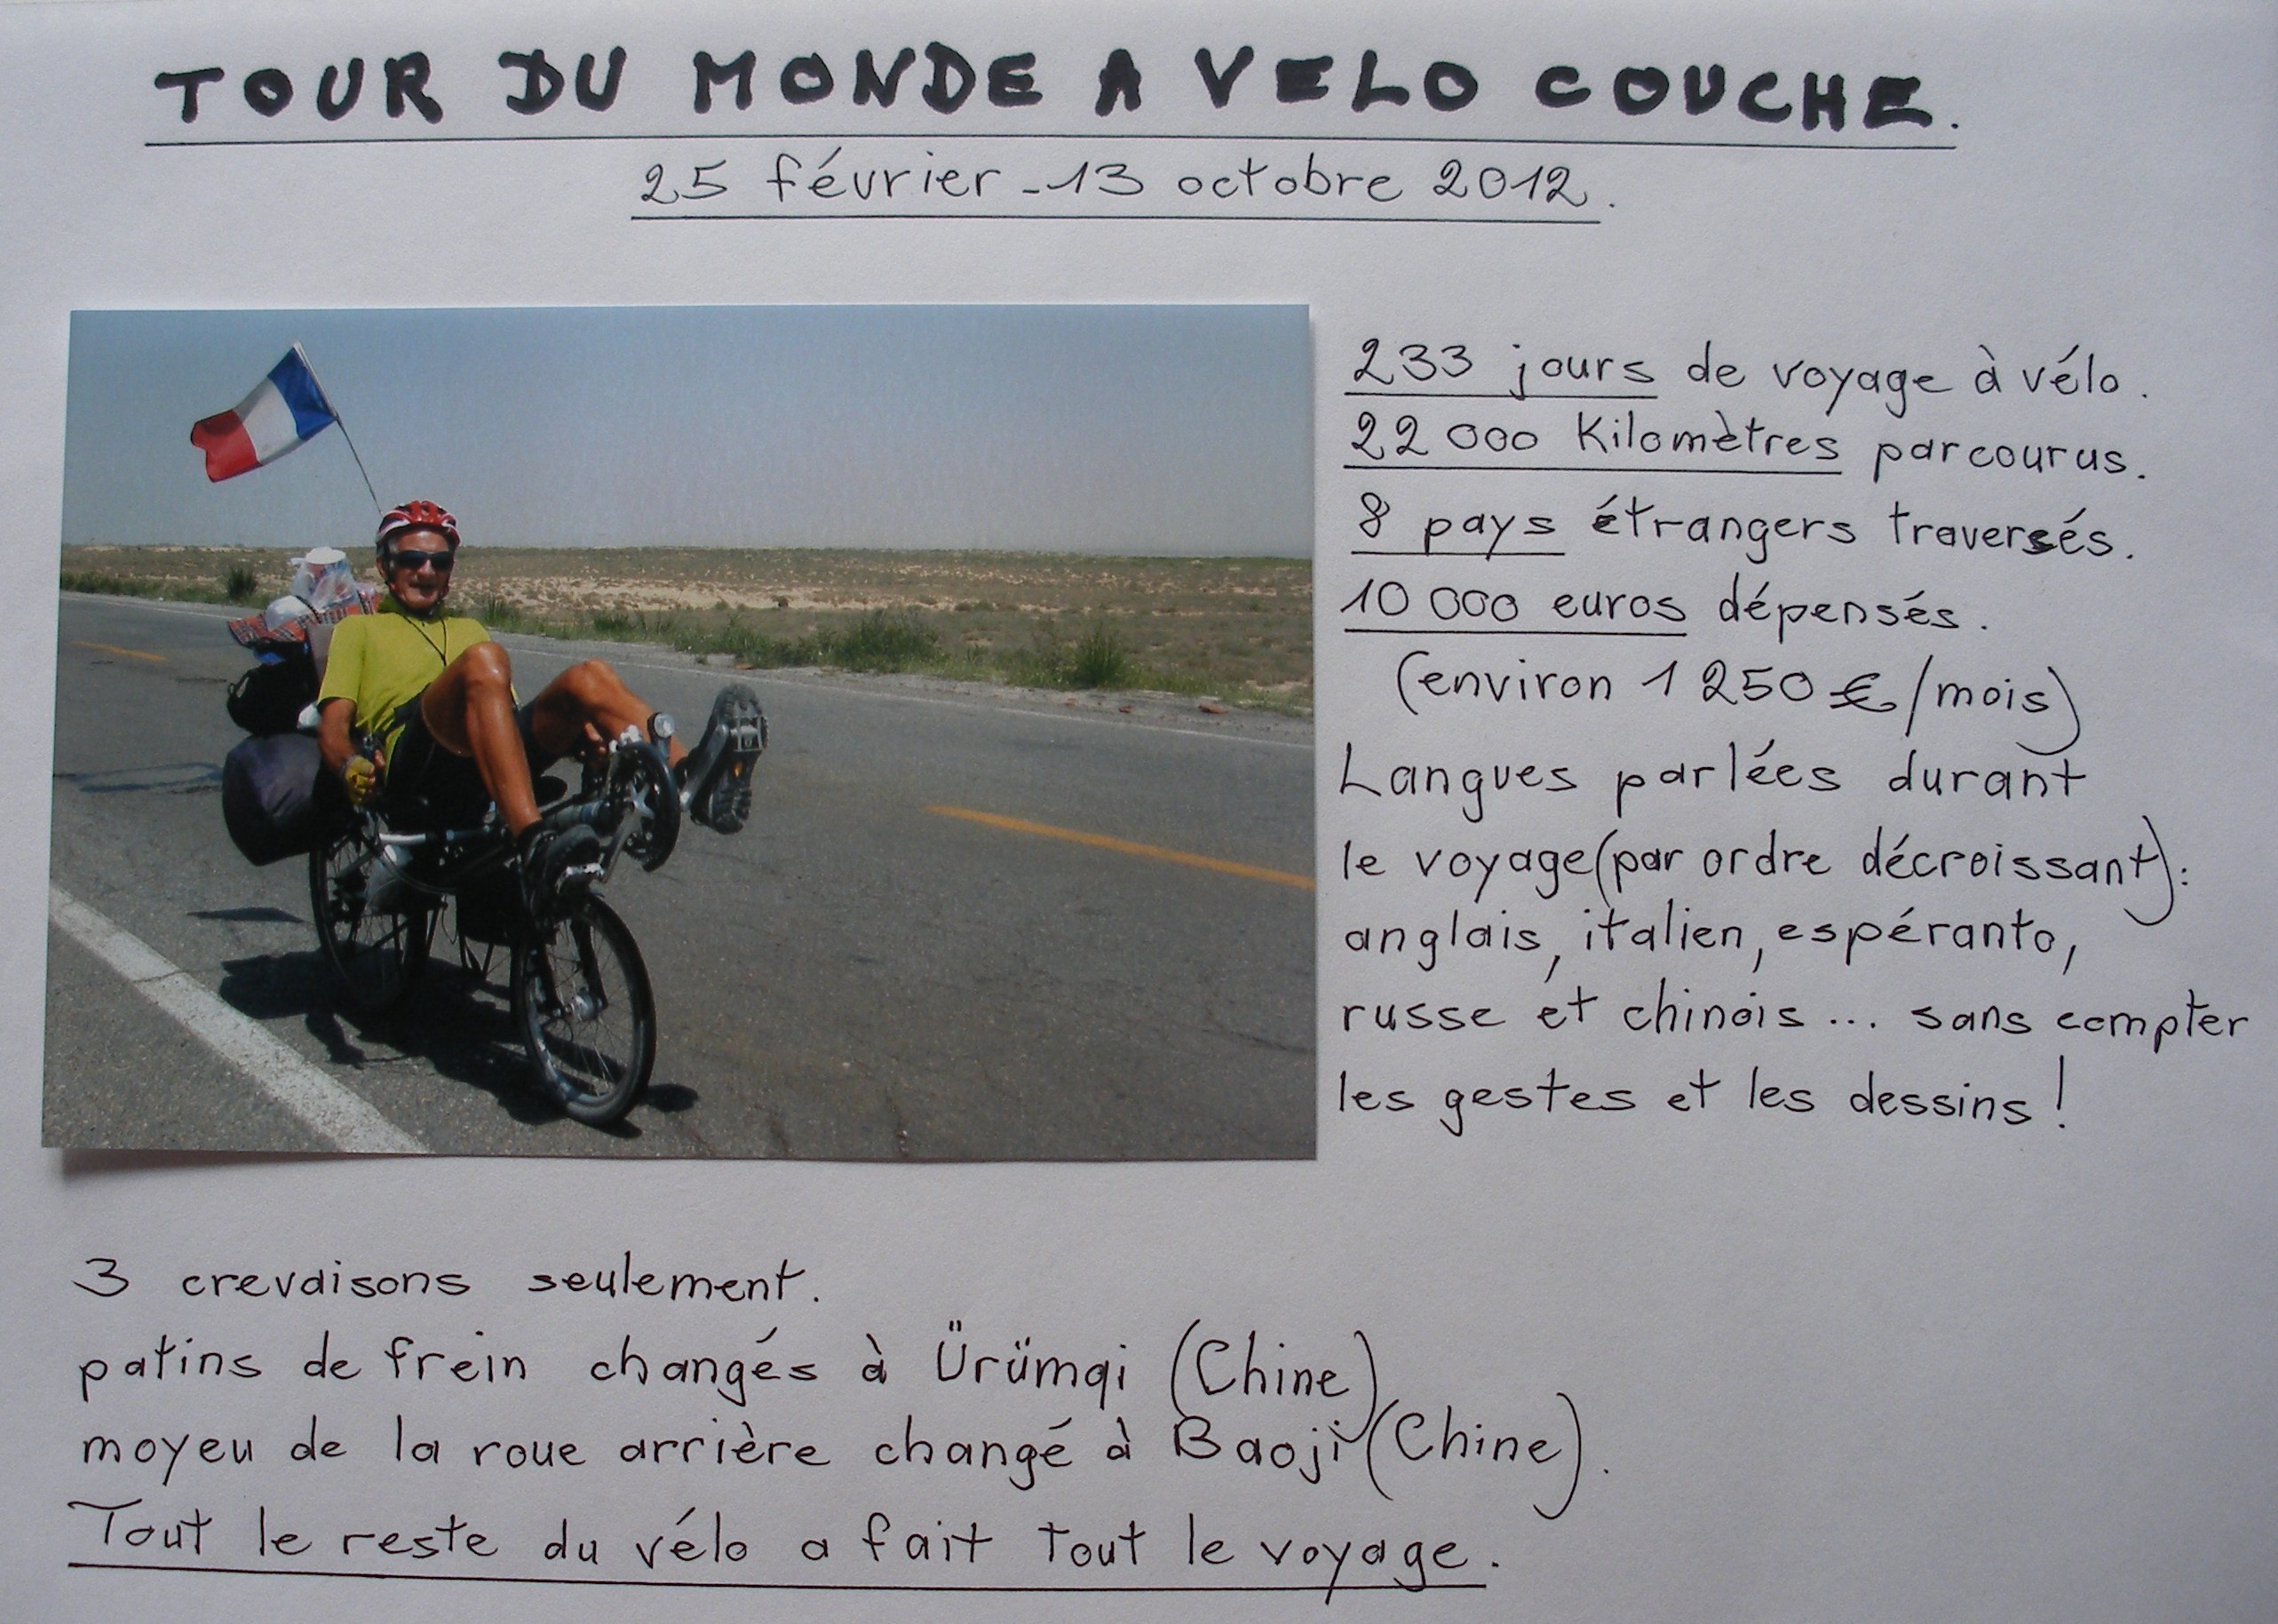 TOUR DU MONDE A VELO COUCHE.
25 février - 13 octobre 2012.
233 jours de voyage à vélo.
22 000 Kilomètres parcourus.
8 pays étrangers traversés.
10 000 euros dépensés.
(environ 1 250 €/mois)
Langues parlées durant
le voyage (par ordre décroissant):
anglais, italien, espéranto,
russe et chinois ... sans compter
les gestes et les dessins !
3 crevaisons seulement.
patins de frein changés à Ürümqi (Chine)
moyeu de la roue arrière changé à Baoji (Chine).
Tout le reste du vélo a fait tout le voyage.